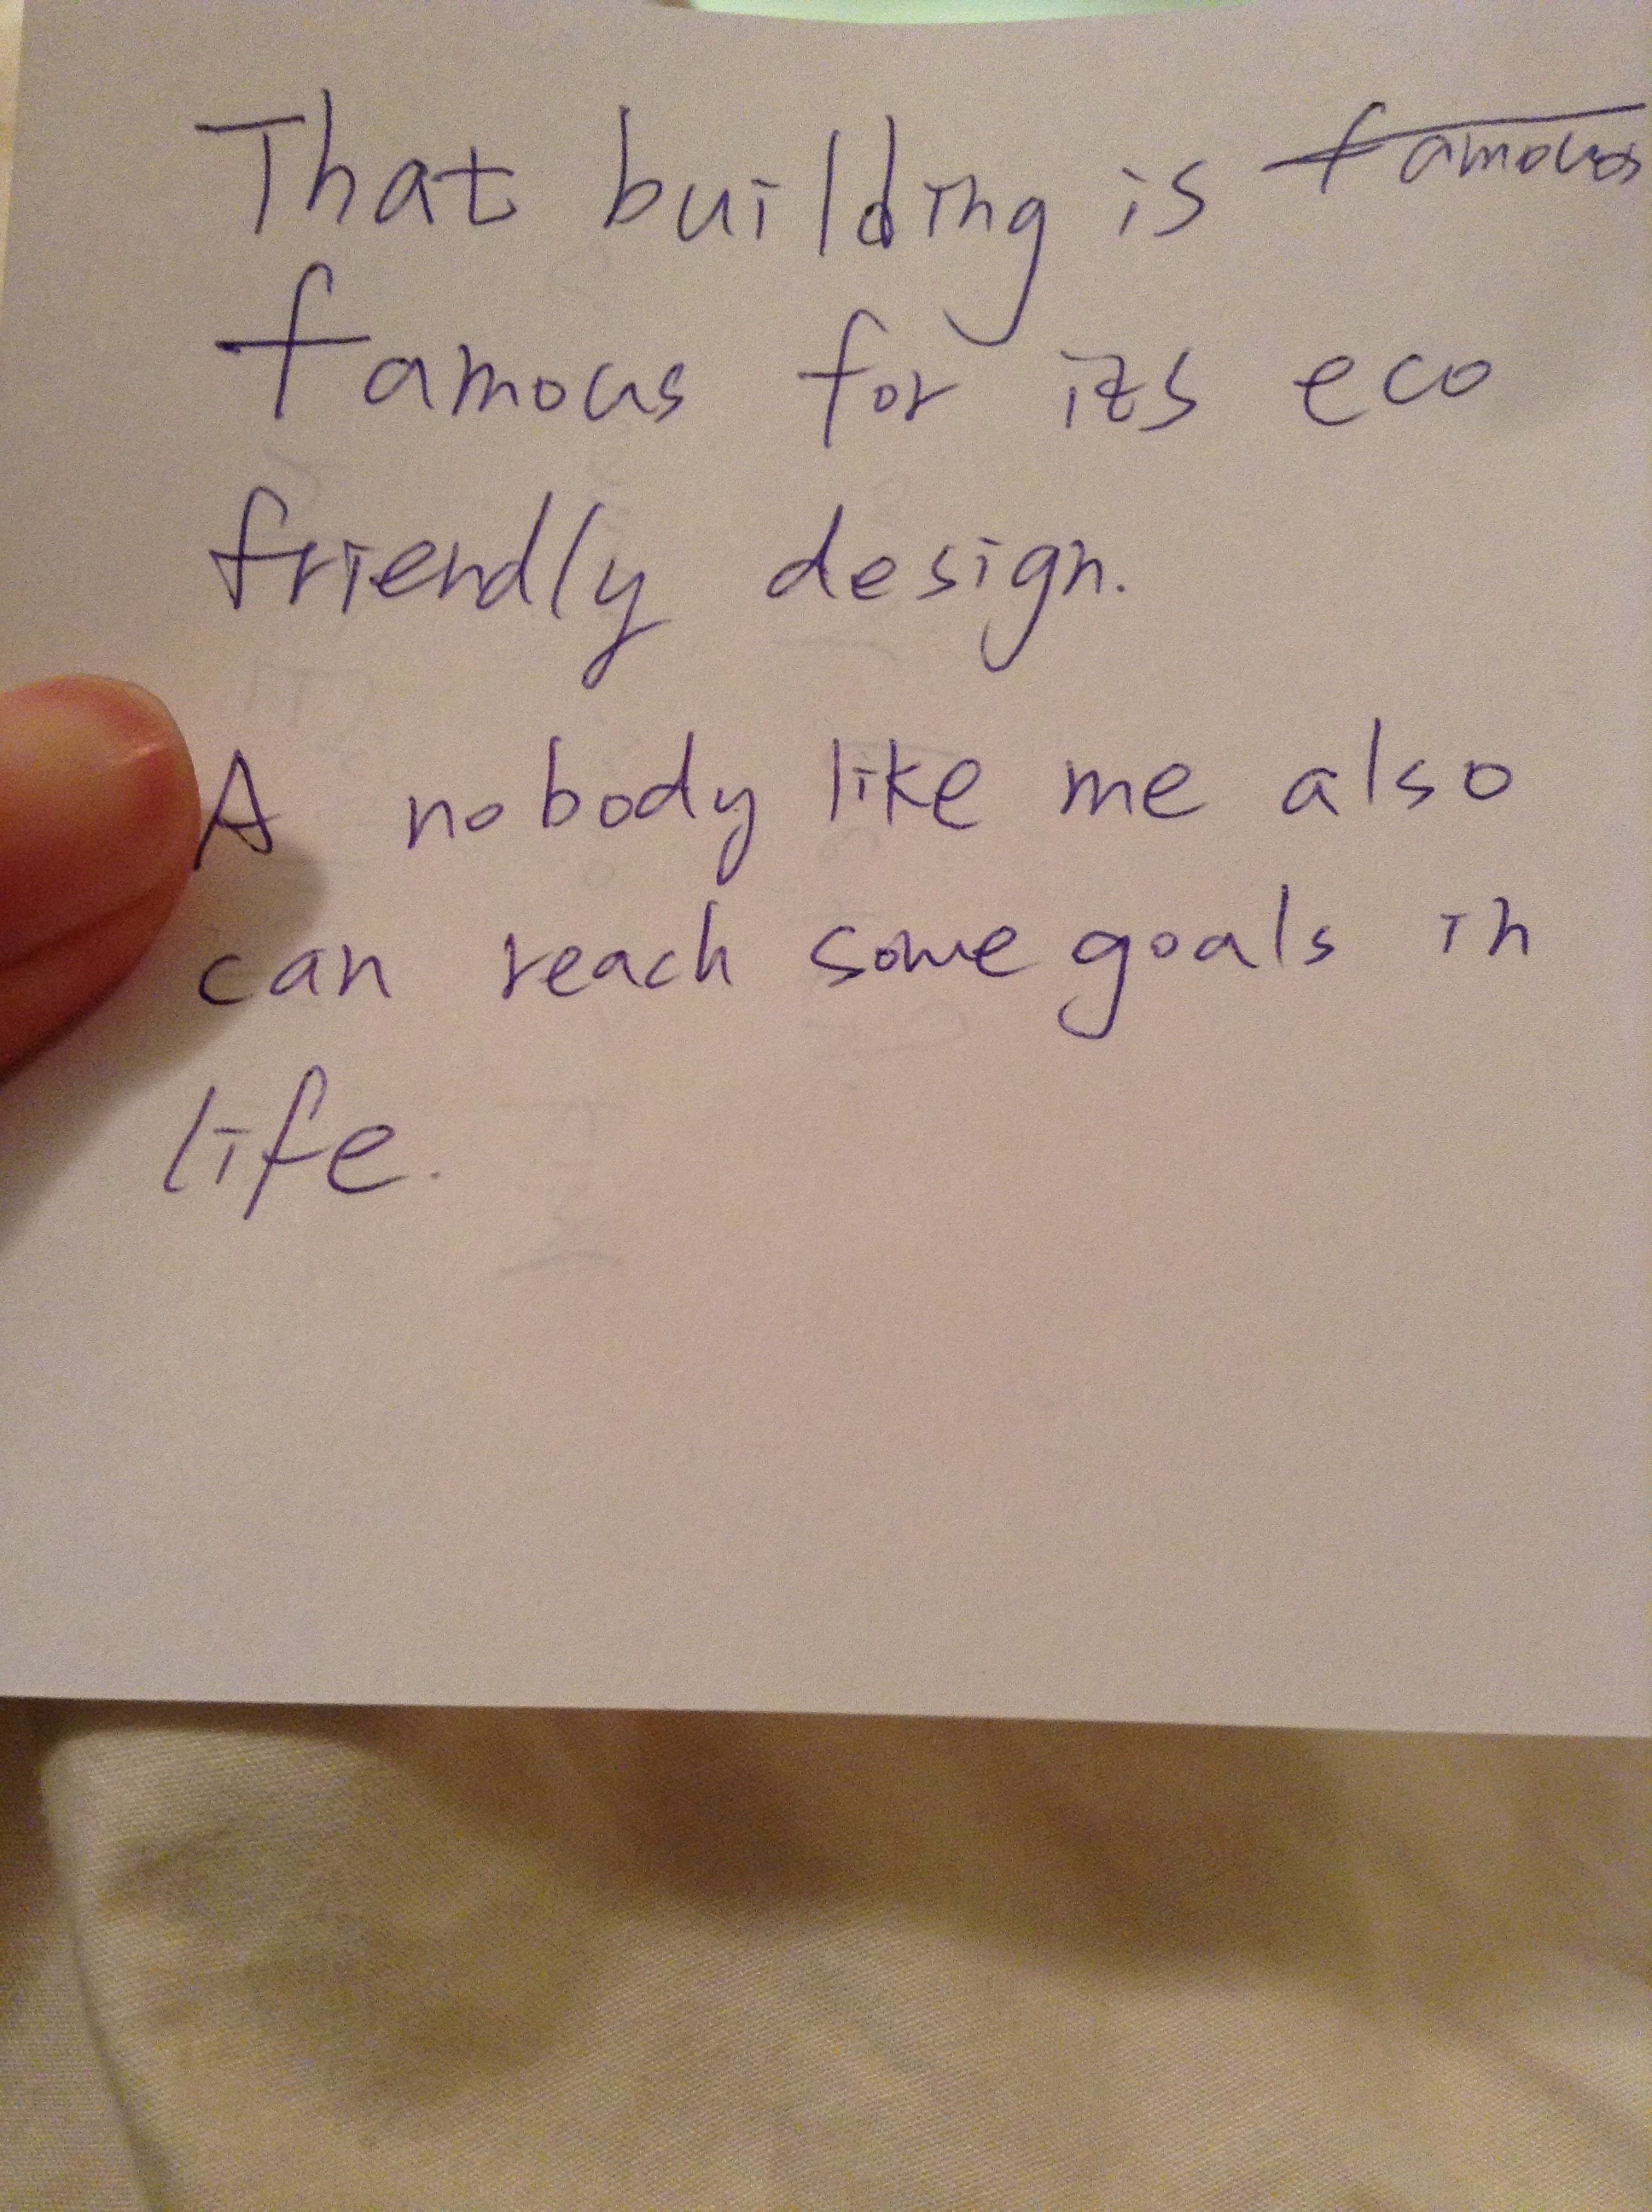 That building is famous
famous for its eco
friendly design.
A nobody like me also
can reach some goals in
life.